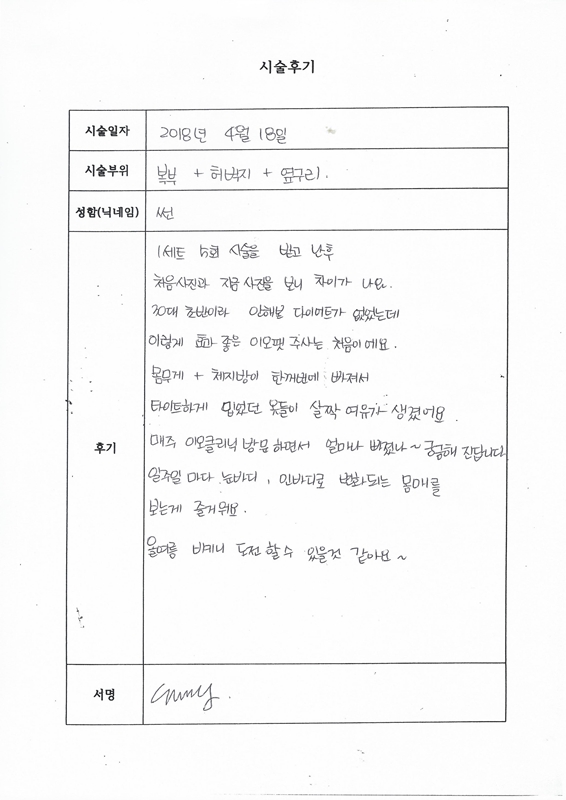 시술후기
시술일자 2018년 4월 18일
시술부위 복부 + 허벅지 + 옆구리.
성함(닉네임) 써니
1세트 5회 시술을 받고 난후
처음사진과 지금 사진을 보니 차이가 나요.
30대 초반이라 안해본 다이어트가 없었는데
이렇게 효과 좋은 이오팻 주사는 처음이에요.
몸무게 + 체지방이 한꺼번에 빠져서
타이트하게 입었던 옷들이 살짝 여유가 생겼어요
후기
매주 이오클리닉 방문하면서 얼마나 빠졌나~ 궁금해 진답니다
일주일 마다 눈바디, 인바디로 변화되는 몸매를
보는게 즐거워요.
올여름 비키니 도전할수 있을것 같아요~
서명